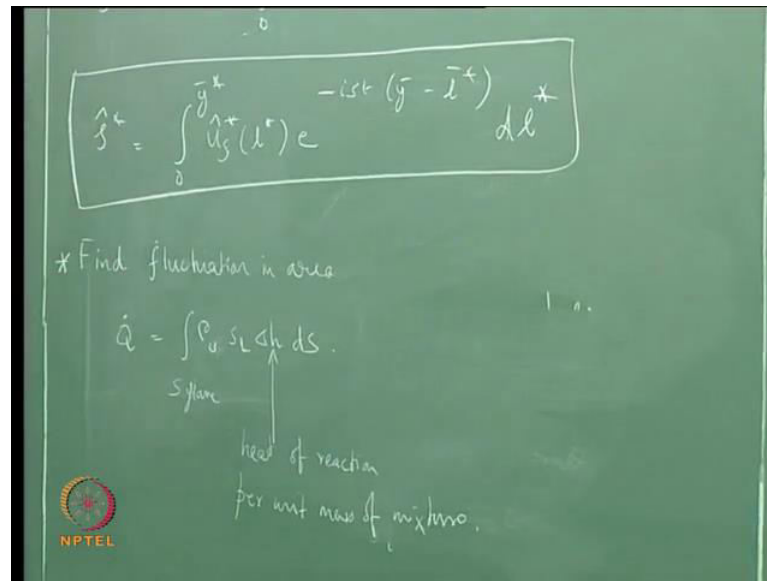 0
ξ̂* = ∫₀^ȳ* û*_ξ(l*) e^{-i st (ȳ - l̄*)} dl*
* Find fluctuation in area
Q̇ = ∫ ρ_u S_L Δh ds.
S flame
heat of reaction
per unit mass of mixture.
NPTEL